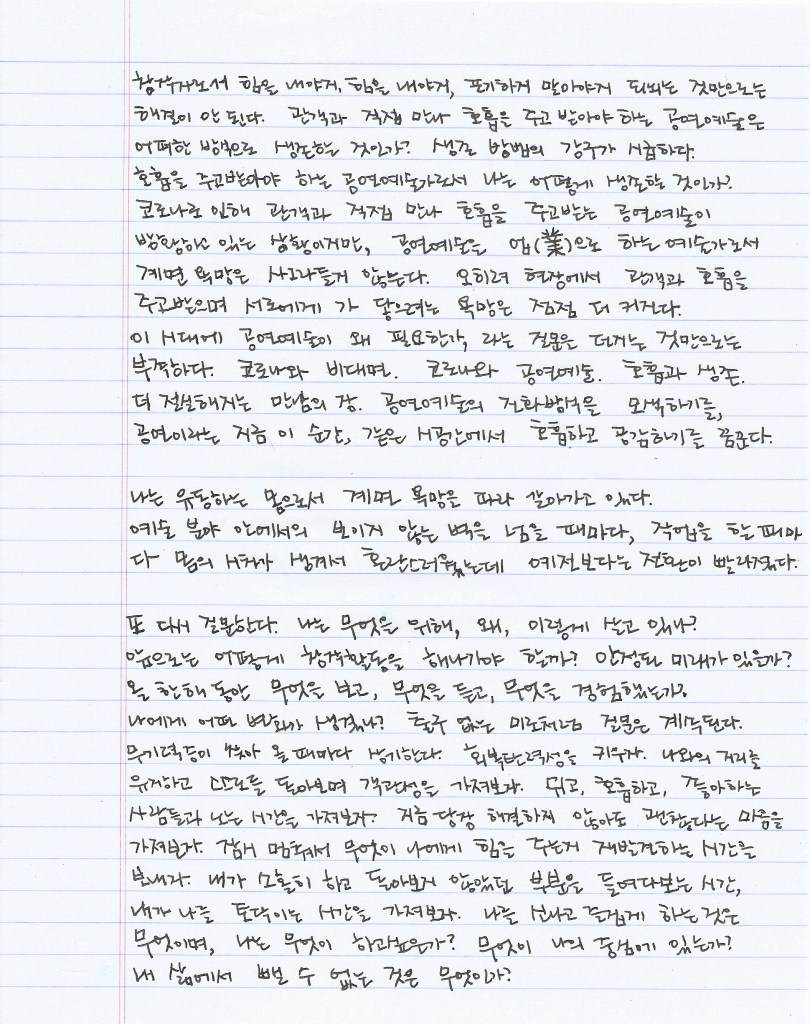 창작자로서 힘을 내야지, 힘을 내야지, 포기하지 말아야지 되뇌는 것만으로는
해결이 안 된다. 관객과 직접 만나 호흡을 주고 받아야 하는 공연예술은
어떠한 방식으로 생존하는 것인가? 생존 방법의 강구가 시급하다.
호흡을 주고받아야 하는 공연예술가로서 나는 어떻게 생존할 것인가?
코로나로 인해 관객과 직접 만나 호흡을 주고받는 공연예술이
방황하고 있는 상황이지만, 공연예술을 업(業)으로 하는 예술가로서
계면 욕망은 사그라들지 않는다. 오히려 현장에서 관객과 호흡을
주고받으며 서로에게 가 닿으려는 욕망은 점점 더 커진다.
이 시대에 공연예술이 왜 필요한가, 라는 질문을 던지는 것만으로는
부족하다. 코로나와 비대면. 코로나와 공연예술. 호흡과 생존.
더 절실해지는 만남의 장. 공연예술의 진화방식을 모색하기를,
공연이라는 지금 이 순간, 같은 시공간에서 호흡하고 공감하기를 꿈꾼다.
나는 유동하는 몸으로서 계면 욕망을 따라 살아가고 있다.
예술 분야 안에서의 보이지 않는 벽을 넘을 때마다, 작업을 할 때마
다 몸의 시차가 생겨서 혼란스러웠는데 예전보다는 전환이 빨라졌다.
또 다시 질문한다. 나는 무엇을 위해, 왜, 이렇게 살고 있나?
앞으로는 어떻게 창작활동을 해나가야 할까? 안정된 미래가 있을까?
올 한해 동안 무엇을 보고, 무엇을 듣고, 무엇을 경험했는가?
나에게 어떤 변화가 생겼나? 출구 없는 미로처럼 질문은 계속된다.
무기력증이 찾아 올 때마다 상기한다. 회복탄력성을 키우자. 나와의 거리를
유지하고 스스로를 돌아보며 객관성을 가져보자. 쉬고, 호흡하고, 좋아하는
사람들과 노는 시간을 가져보자? 지금 당장 해결하지 않아도 괜찮다는 마음을
가져보자. 잠시 멈춰서 무엇이 나에게 힘을 주는지 재발견하는 시간을
보내자. 내가 소홀히 하고 돌아보지 않았던 부분을 들여다보는 시간,
내가 나를 토닥이는 시간을 가져보자. 나를 신나고 즐겁게 하는 것은
무엇이며, 나는 무엇이 하고싶은가? 무엇이 나의 중심에 있는가?
내 삶에서 뺄 수 없는 것은 무엇인가?